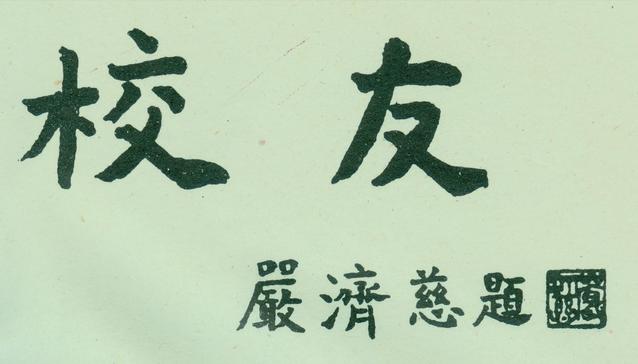 校友
嚴濟慈題